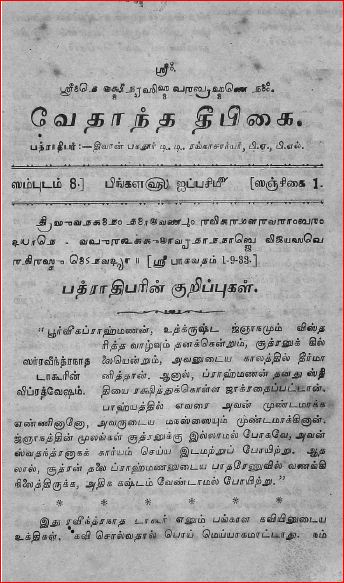 ஸ்ரீ:
வேதாந்த தீபிகை.
பத்ராதிபர்:—திவான் பகதூர் டி. டி. ரங்காசார்யர், பி.ஏ., பி.எல்.
ஸம்புடம் 8.] பிங்கள ஐப்பசி [ஸஞ்சிகை 1.
[ஸ்ரீ பாகவதம் 1-9-33.]
பத்ராதிபரின் குறிப்புகள்.
"பூர்விகப்ராஹ்மணன், உத்க்ருஷ்ட ஜ்ஞாகமும் விஸ்த
ரித்த வாழ்வும் தனக்கென்றும், சூத்ரனுக் கில்
ஸர்ரவீந்த்ரநாத
லையென்றும், அவனுடைய காலத்தில் தீர்மா
டாகூரின்
னித்தான். ஆனால், ப்ராஹ்மணன் தனது ஸ்தி
விப்ரத்வேஷம்.
தியை ரக்ஷித்துக்கொள்ள ஜாக்ரதைப்பட்டான்.
பாஹ்யத்தில் எவரை அவன் முண்டமாக்க
எண்ணினானோ, அவருடைய மகஸ்ஸையும் முண்டமாக்கினான்.
ஜ்ஞாகத்தின் மூலங்கள் சூத்ரனுக்கு இல்லாமல் போகவே, அவன்
ஸ்வதந்த்ரனாகக் கார்யம் செய்ய இடமற்றுப் போயிற்று. ஆத
லால், சூத்ரன் தலை ப்ராஹ்மணனுடைய பாதரேணுவில் வணங்கி
நிலைத்திருக்க, அதிக கஷ்டம் வேண்டாமல் போயிற்று."
* * * * * *
இது ரவீந்த்ரநாத டாகூர் எனும் பங்காள கவியினுடைய
உக்திகள். கவி சொல்வதால் பொய் மெய்யாகமாட்டாது. நம்